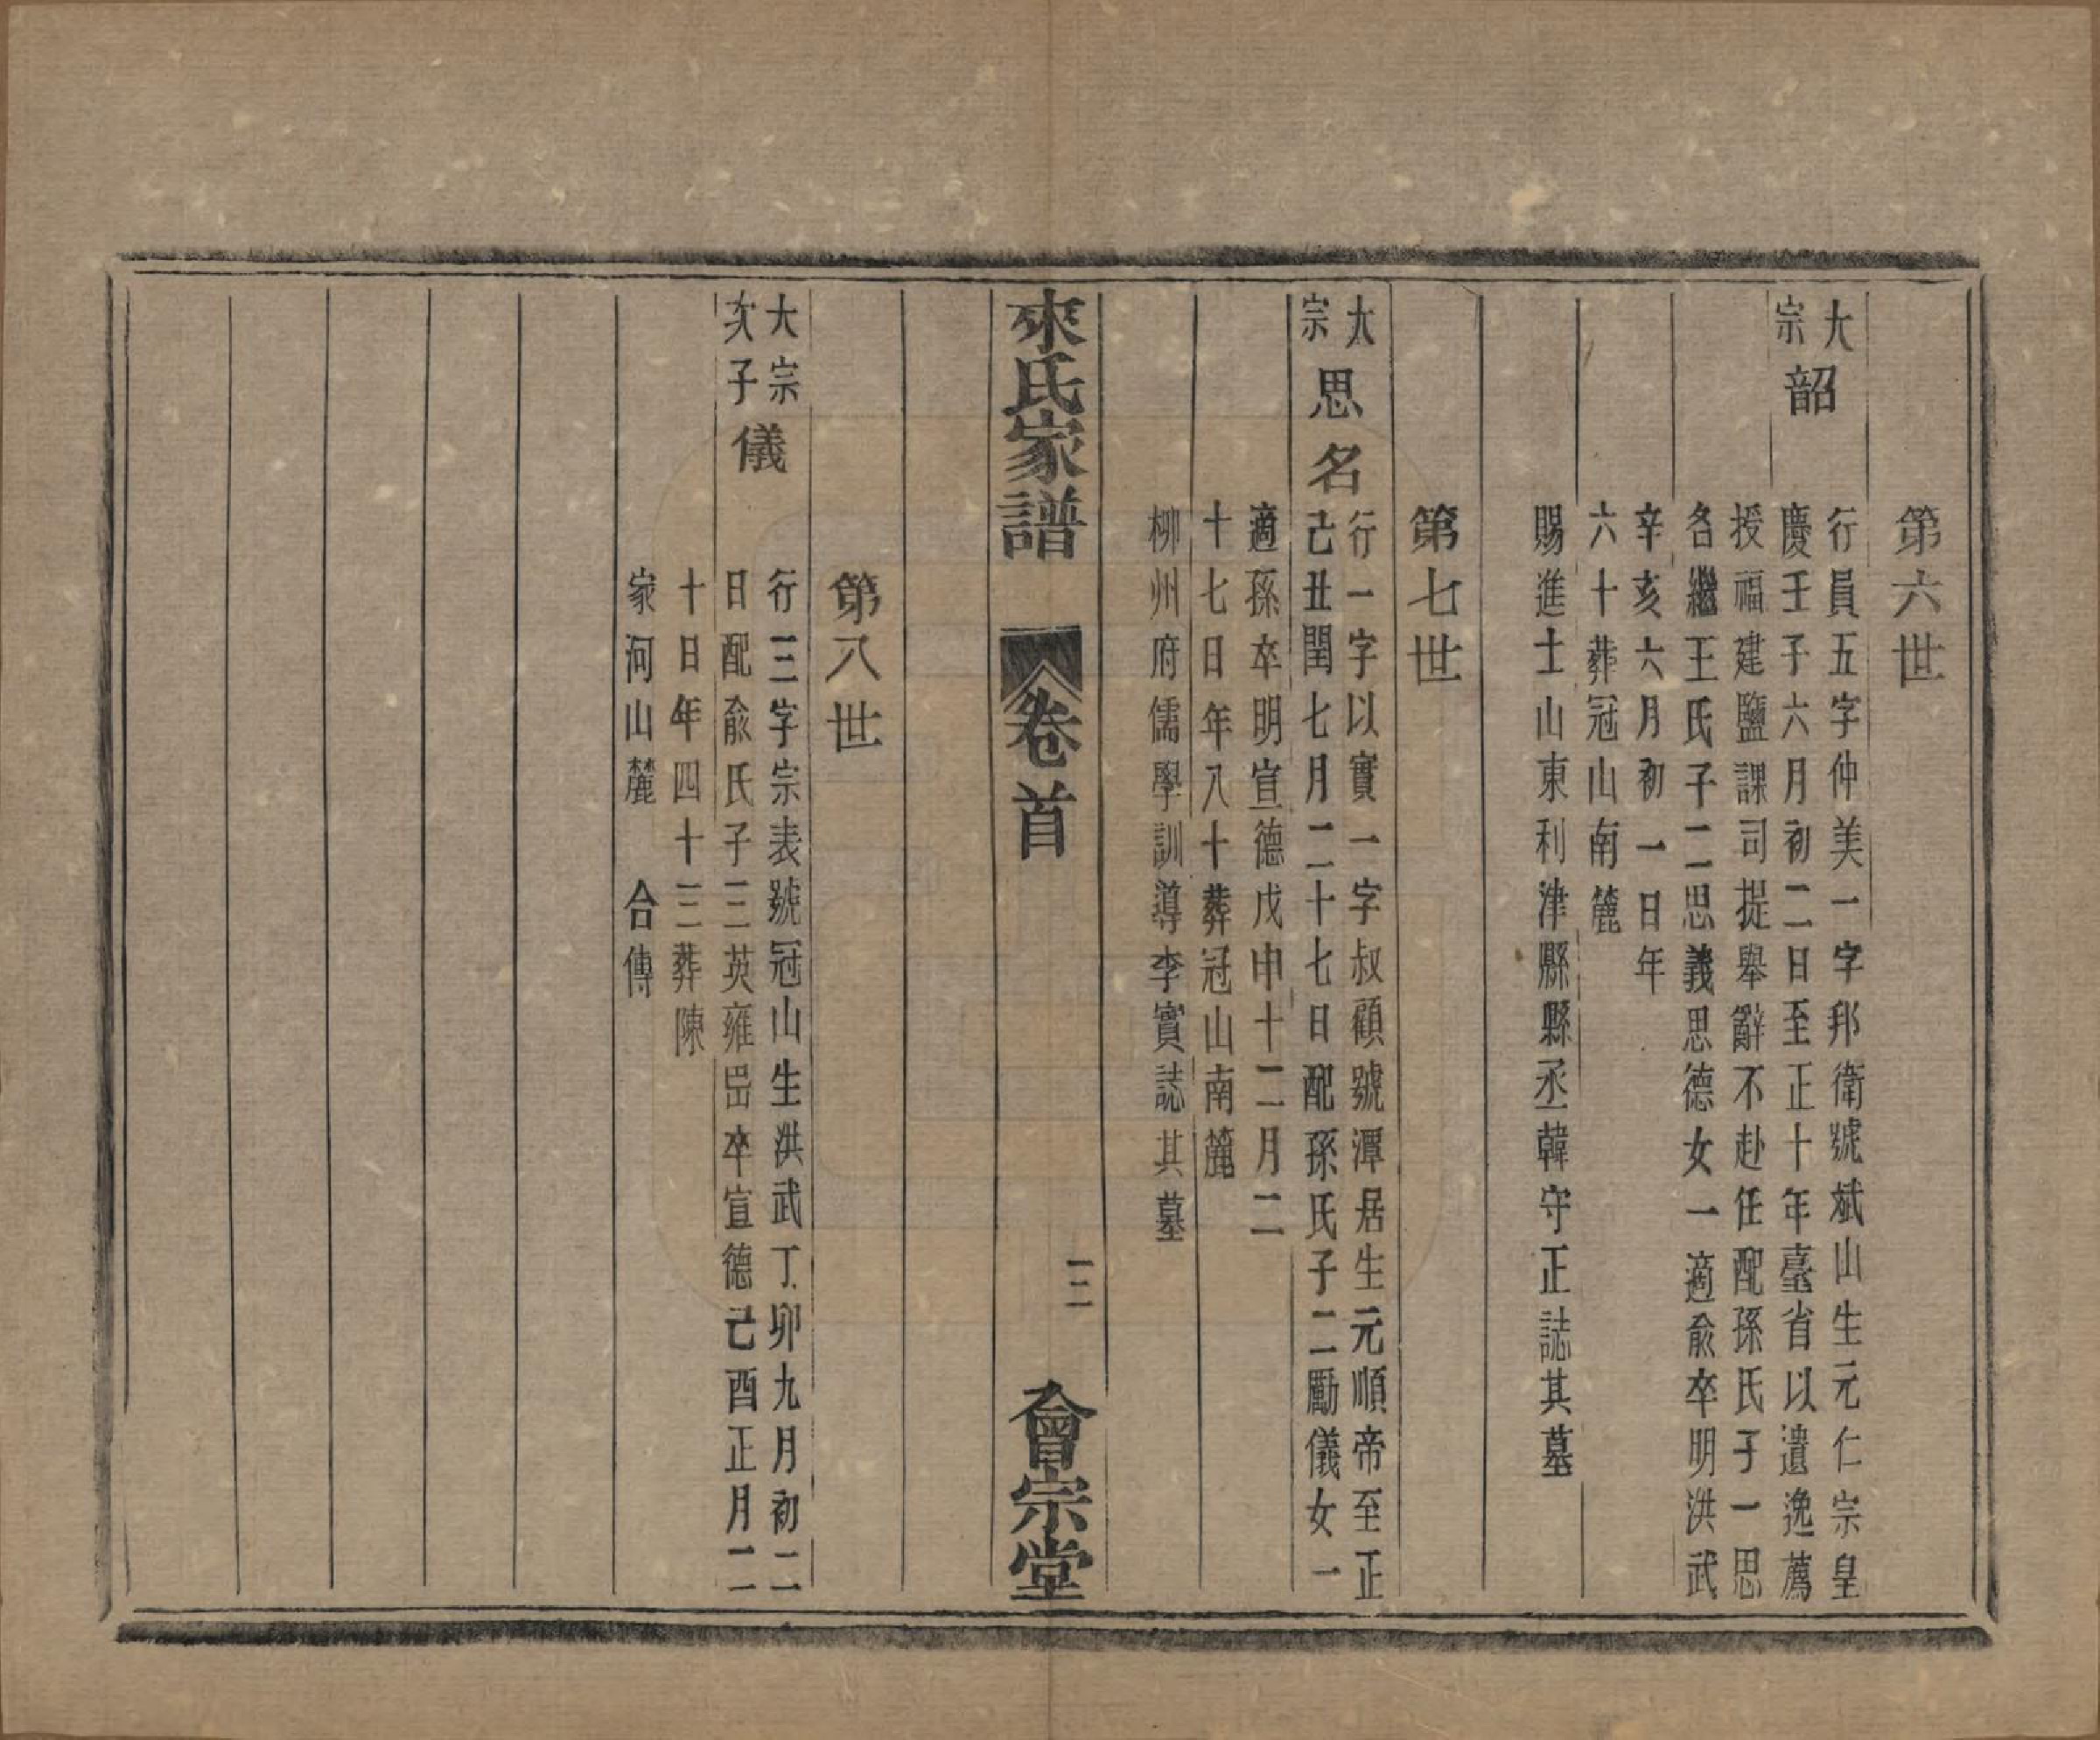 第六世
大宗韶
行員五字仲美一字邦衛號斌山生元仁宗皇
慶壬子六月初二日至正十年臺省以遺逸薦
授福建鹽課司提舉辭不赴任配孫氏子一思
名繼王氏子二思義思德女一適俞卒明洪武
辛亥六月初一日年
六十葬冠山南麓
賜進士山東利津縣縣丞韓守正誌其墓
第七世
大宗思名
行一字以實一字叔顧號潭居生元順帝至正
己丑閏七月二十七日配孫氏子二勵儀女一
適孫卒明宣德戊申十二月二
十七日年八十葬冠山南麓
柳州府儒學訓導李實誌其墓
來氏家譜 卷首 三 會宗堂
第八世
大宗次子儀
行三字宗表號冠山生洪武丁卯九月初二
日配俞氏子三英雍嵒卒宣德己酉正月二
十日年四十三葬陳
家河山麓 合傳